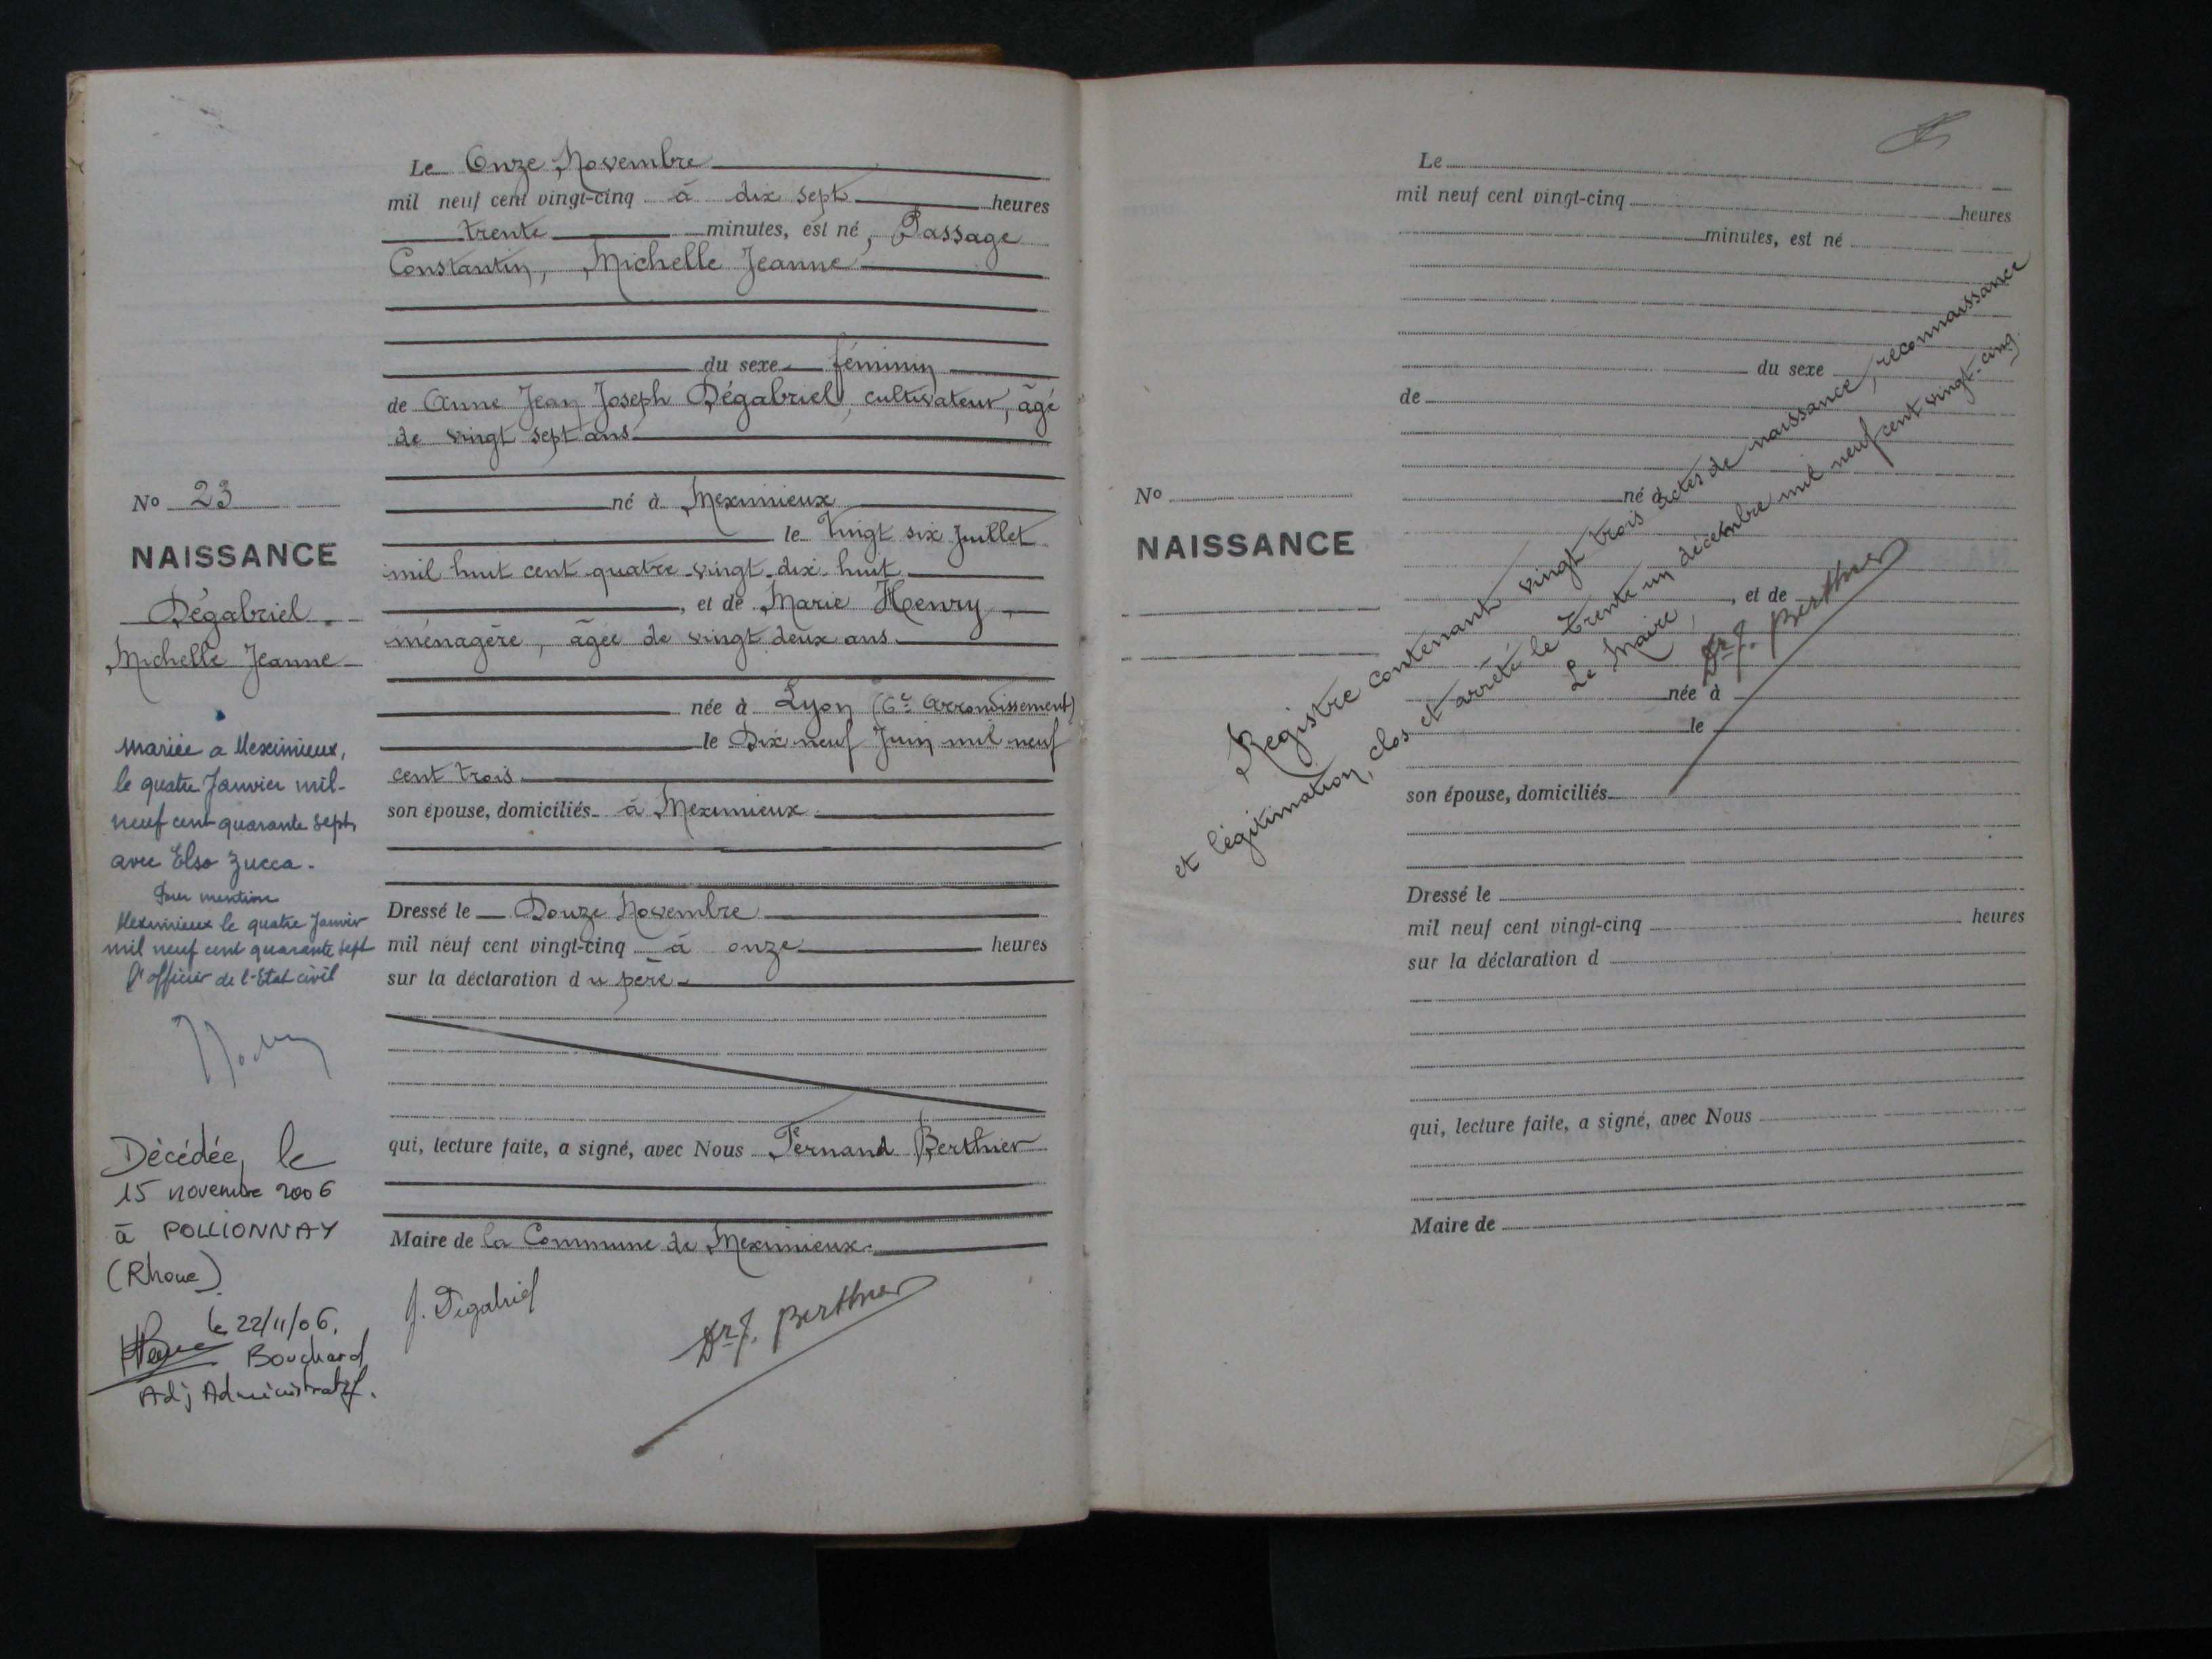 Le Onze Novembre
mil neuf cent vingt-cinq à dix sept heures
trente minutes, est né, Passage
Constantin, Michelle Jeanne
du sexe féminin
de Anne Jean Joseph Dégabriel, cultivateur, âgé
de vingt sept ans
né à Meximieux
le Vingt six Juillet
mil huit cent quatre-vingt-dix-huit
, et de Marie Henry,
ménagère, âgée de vingt deux ans
née à Lyon (6e Arrondissement)
le Dix neuf Juin mil neuf
cent trois
son épouse, domiciliés à Meximieux
Dressé le Douze Novembre
mil neuf cent vingt-cinq à onze heures
sur la déclaration du père
qui, lecture faite, a signé, avec Nous Fernand Berthier
Maire de la Commune de Meximieux.
J. Dégabriel
Dr f. Berthier
No 23
NAISSANCE
Dégabriel
Michelle Jeanne
Mariée a Meximieux,
le quatre Janvier mil-
neuf cent quarante sept
avec Elso Zucca.
Pour mention
Meximieux le quatre Janvier
mil neuf cent quarante sept
l'officier de l'Etat civil
Décédée, le
15 novembre 2006
à POLLIONNAY
(Rhone).
le 22/11/06.
Bouchard
Adj Administratif.
Le
mil neuf cent vingt-cinq heures
minutes, est né
du sexe
de
né à
No
NAISSANCE
, et de
née à
le
son épouse, domiciliés
Dressé le
mil neuf cent vingt-cinq heures
sur la déclaration d
qui, lecture faite, a signé, avec Nous
Maire de
Registre contenant vingt trois actes de naissance, reconnaissance
et légitimation, clos et arrêté le trente-un décembre mil neuf cent vingt-cinq
Le Maire,
Dr f. Berthier